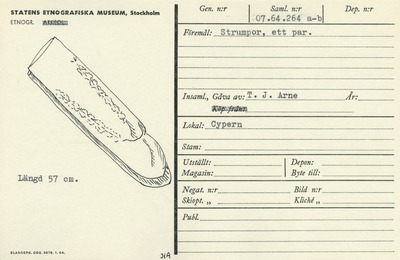 STATENS ETNOGRAFISKA MUSEUM, Stockholm
ETNOGR.
Längd 57 cm.
ELANDERS, GBG. 5878. 1. 64.
Gen. n:r Saml. n:r Dep. n:r
07.64.264 a-b
Föremål: Strumpor, ett par.
Insaml., Gåva av: T. J. Arne År:
Köp från
Lokal: Cypern
Stam:
Utställt: Depon:
Magasin: Byte till:
Negat. n:r Bild n:r
Skiopt. „ Kliché „
Publ.